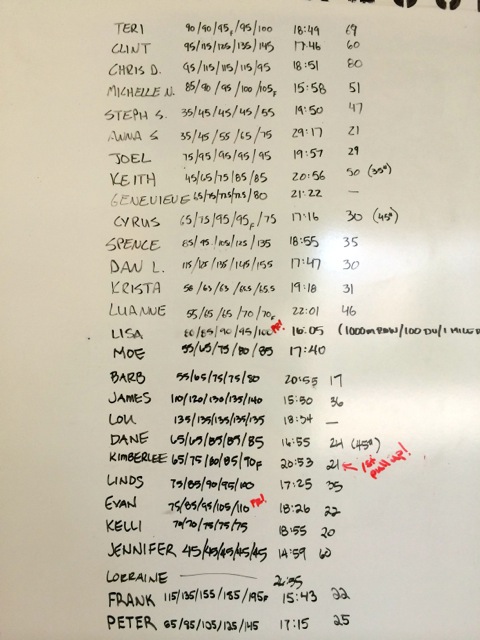 TERI 90/90/95F/95/100 18:49 69
CLINT 95/115/125/135/145 17:46 60
CHRIS D. 95/115/115/115/95 18:51 80
MICHELLE N. 85/90/95/100/105F 15:58 51
STEPH S. 35/45/45/45/55 19:50 47
ANNA S 35/45/55/65/75 29:17 21
JOEL 75/95/95/95/95 19:57 29
KEITH 45/65/75/85/85 20:56 50 (35#)
GENEVIEVE 65/75/75/75/80 21:22 —
CYRUS 65/75/95/95F/75 17:16 30 (45#)
SPENCE 85/95/105/125/135 18:55 35
DAN L. 115/125/135/145/155 17:47 30
KRISTA 58/63/63/ 19:18 31
LUANNE 55/65/65/70/70F 22:01 46
LISA 80/85/90/95/100 PR! 16:05 (1000M ROW/100 DU/1 MILE
MOE 55/65/75/80/85 17:40
BARB 55/65/75/75/80 20:55 17
JAMES 110/120/130/135/140 15:50 36
LOU 135/135/135/135/135 18:34 —
DANE 65/65/85/85/85 16:55 24 (45#)
KIMBERLEE 65/75/80/85/90F 20:53 21 ← 1st pull up!
LINDS 75/85/90/95/100 17:25 35
EVAN 75/85/95/105/110 PR! 18:26 22
KELLI 70/70/75/75/75 18:55 20
JENNIFER 45/45/45/45/45 14:59 60
LORRAINE —
FRANK 115/135/155/185/195F 15:43 22
PETER 65/95/105/125/145 17:15 25